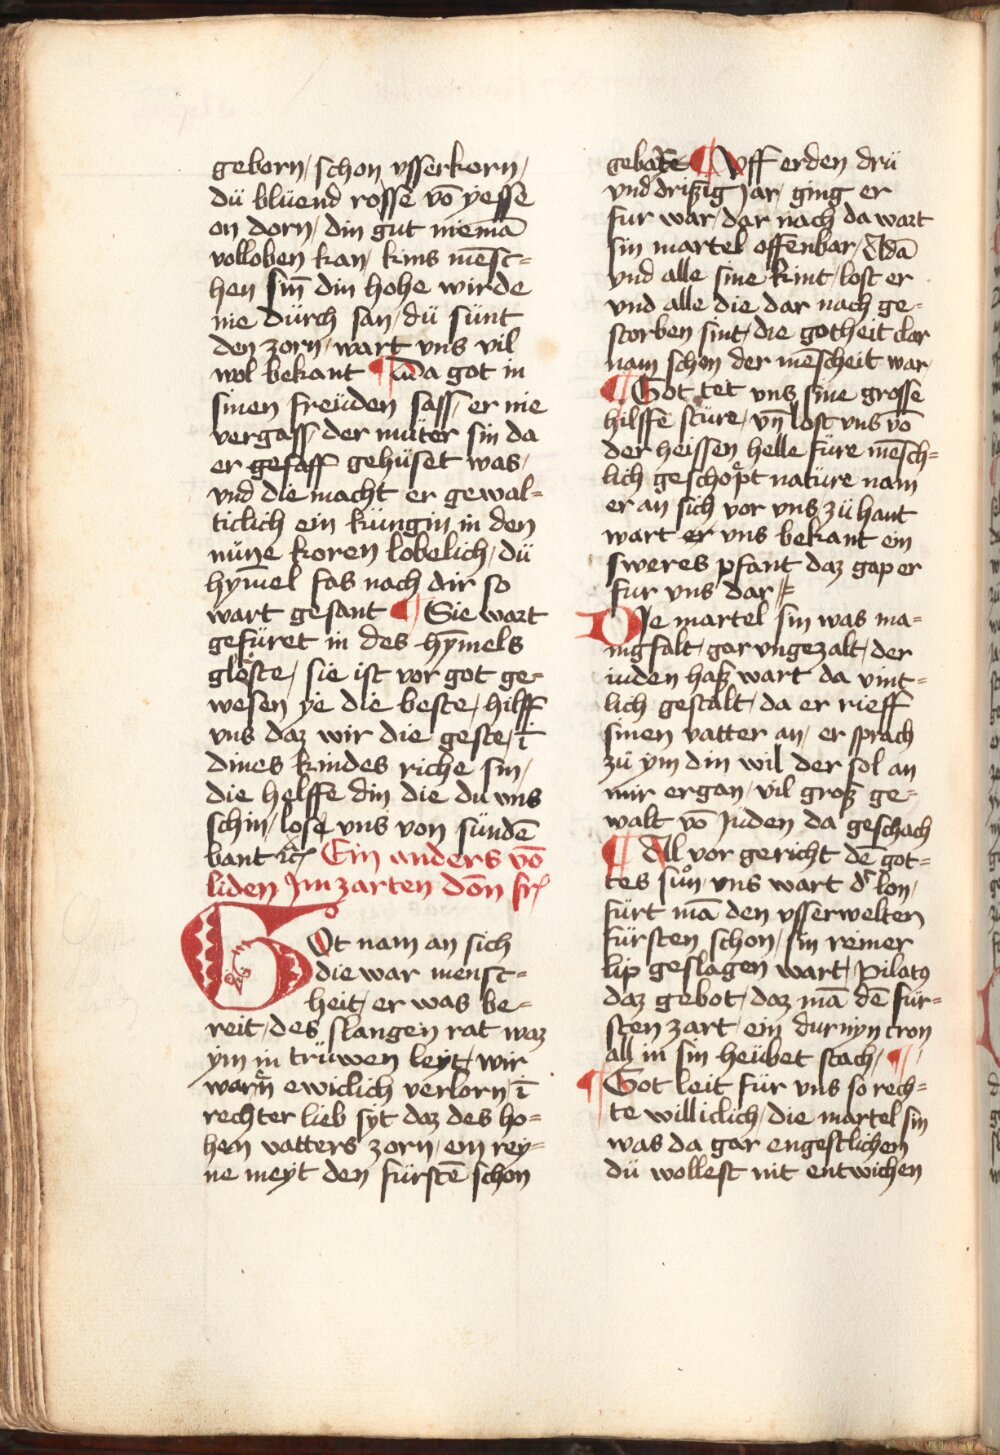 geborn/ schon vsserkorn/
dü blüend rosse vō yesse
on dorn/ din gut niemā
volloben kan/ kins mēsc=
hen siñ din hohe wirde
nie dürch san/ dü sünt
den zorn/ wart vns vil
wol bekant ¶ Da got in
sinen freüden sass/ er nie
vergass/ der müter sin da
er gesass gehüset was/
vnd die macht er gewal=
ticlich ein küngin in den
nüne koren lobelich/ dü
hym̄el fas nach dir so
wart gesant ¶ Sie wart
gefüret in des hym̄els
glöste/ sie ist vor got ge=
wesen ye die beste/ hilff
vns daz wir die geste/ ī
dines kindes riche sin/
die helffe din die du vns
schin/ lose vns von sündē
bant rc̄ Ein anders vō
liden Jm zarten dōn fr
GOt nam an sich
die war mensc=
heit/ er was be=
reit/ des slangen rat waz
ym in trüwen leyt/ wir
warn̄ ewiclich verlorn/ ī
rechter lieb syt daz des ho=
hen vatters zorn/ ein rey=
ne meyt den fürstē schon
gebare ¶ Vff erden drü
vnd drißig Jar/ ging er
fur war/ dar nach da wart
sin martel offenbar/ Adā
vnd alle sine kint/ lost er
vnd alle die dar nach ge=
storben sint/ die gotheit clar
nam schon der mēscheit war
¶ Got tet vns sine grosse
hilffe stüre/ vn̄ lost vns vō
der heissen helle füre mēsch=
lich geschöpt natüre nam
er an sich vor vns/ zü hant
wart er vns bekant ein
sweres pfant daz gap er
fur vns dar/
DJe martel sin was ma=
nigfalt/ gar vngezalt/ der
iuden haß wart da vint=
lich gestalt/ da er rieff
sinen vatter an/ er sprach
zü ym din wil der sol an
mir ergan/ vil groß ge=
walt vō Jüden da geschach
¶ All vor gericht dē got=
tes sun/ vns wart d' lon/
fürt mā den vsserwelten
fürsten schon/ sin reiner
lip geslagen wart/ Pilatꝯ
daz gebot/ daz mā dē für=
sten zart/ ein durnyn cron
all in sin heübet stach/ ¶
¶ Got leit für vns so rech=
te williclich/ die martel sin
was da gar engestlichen
dü wollest nit entwichen